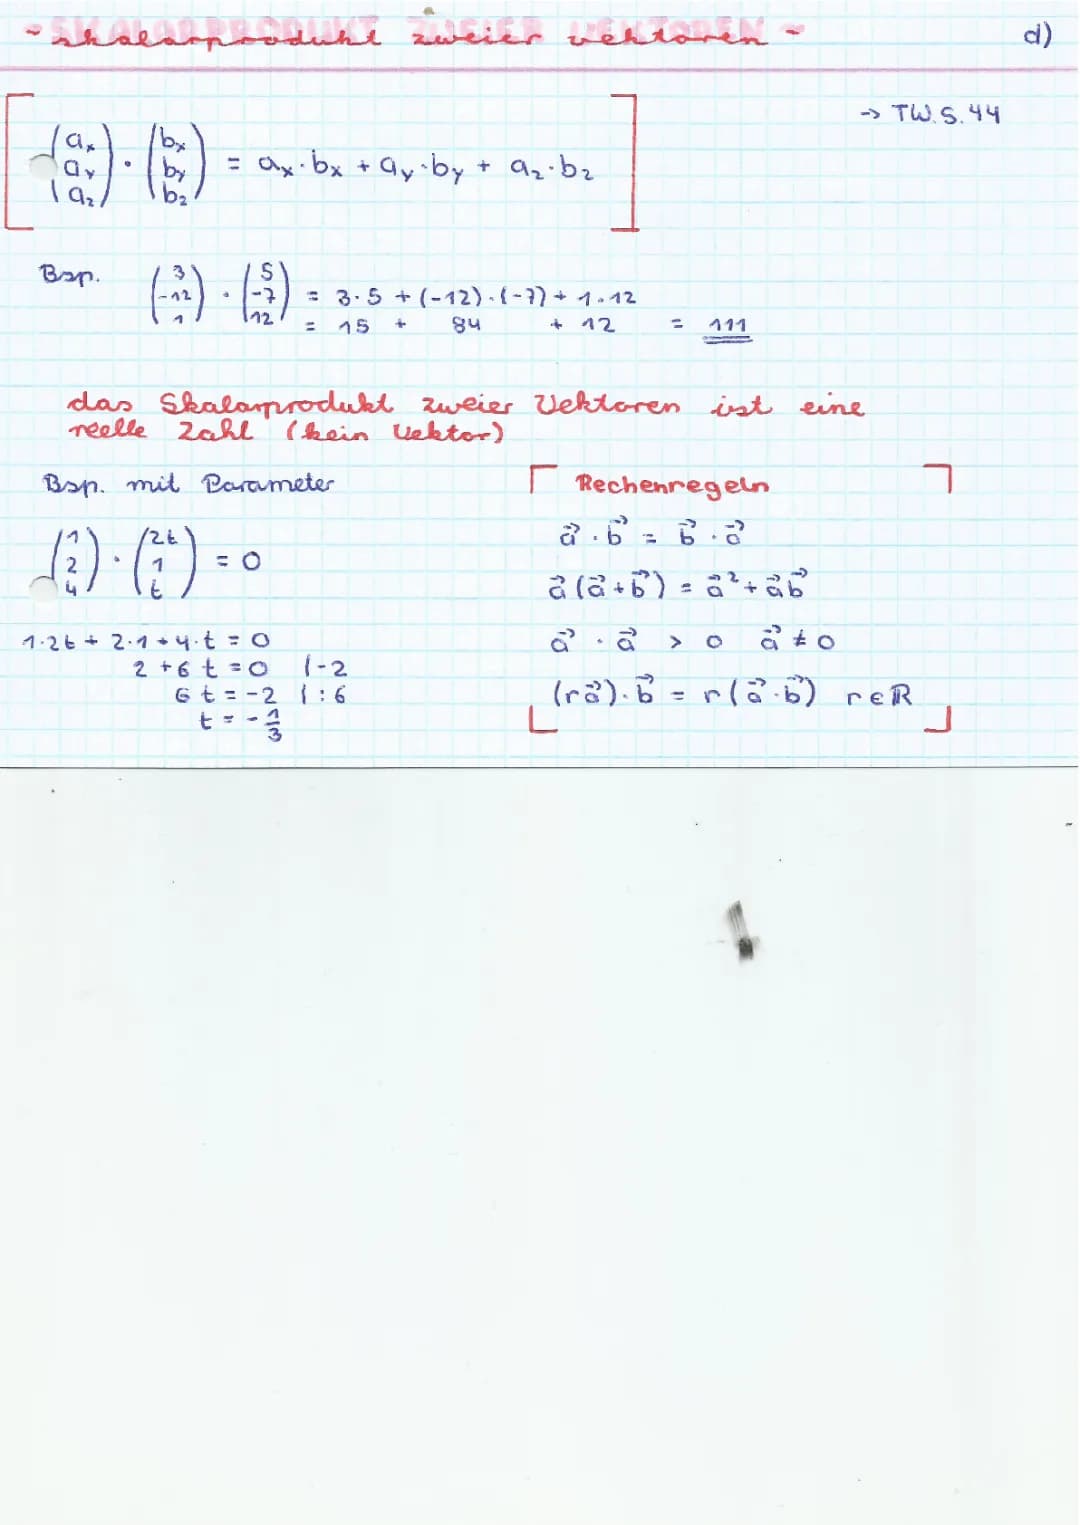 - Skalarprodukt zweier Vektoren -
d)
-> TW. S. 44
(ax ay az) · (bx by bz) = ax·bx + ay·by + az·bz
Bsp. (3 -12 1) · (5 -7 12) = 3·5 + (-12)·(-7) + 1·12
= 15 + 84 + 12 = 111
das Skalarprodukt zweier Vektoren ist eine
reelle Zahl (kein Vektor)
Bsp. mit Parameter
(1 2 4) · (2t 1 t) = 0
1·2t + 2·1 + 4·t = 0
2 + 6t = 0 |-2
6t = -2 |:6
t = -1/3
Rechenregeln
a⃗ · b⃗ = b⃗ · a⃗
a⃗ (a⃗ + b⃗) = a⃗² + a⃗b⃗
a⃗ · a⃗ > 0 a⃗ ≠ 0
(ra⃗) · b⃗ = r(a⃗ · b⃗) r∈ℝ